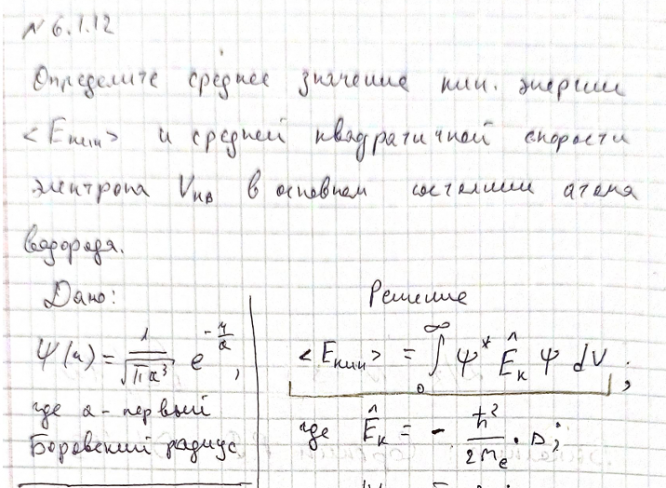 N 6.1.12
Определите среднее значение кин. энергии
<Eкин> и средней квадратичной скорости
электрона Vкв в основном состоянии атома
водорода.
Дано:
Ψ(r) = 1/√(πa³) e^(-r/a),
где a - первый
Боровский радиус
Решение
<Eкин> = ∫₀^∞ Ψ* Êк Ψ dV ;
где Êк = - ħ²/2mₑ · Δ;